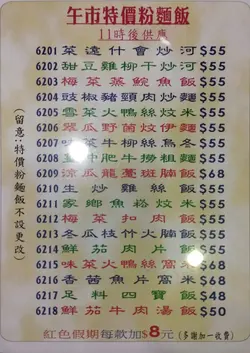 午市特價粉麵飯
11時後供應
6201 菜遠什會炒河 $55
6202 甜豆雞柳干炒河 $55
6203 梅菜蒸鯇魚飯 $55
6204 豉椒豬頸肉炒麵 $55
6205 雪菜火鴨絲炆米 $55
6206 翠瓜野菌炆伊麵 $55
6207 味菜牛柳絲烏冬 $55
肥牛撈粗麵 $55
6209 涼瓜龍躉斑腩飯 $68
6210 生炒雞絲飯 $55
6211 家鄉魚崧炆米 $55
6212 梅菜扣肉飯 $55
6213 冬瓜枝竹火腩飯 $55
6214 鮮茄肉片飯 $55
6215 味菜火鴨絲窩米 $68
6216 香茜魚片窩米 $68
6217 足料四寶飯 $50
6218 鮮茄牛肉湯飯 $50
紅色假期每款加$8元(多謝加一收費)
(留意:特價粉麵飯不設更改)